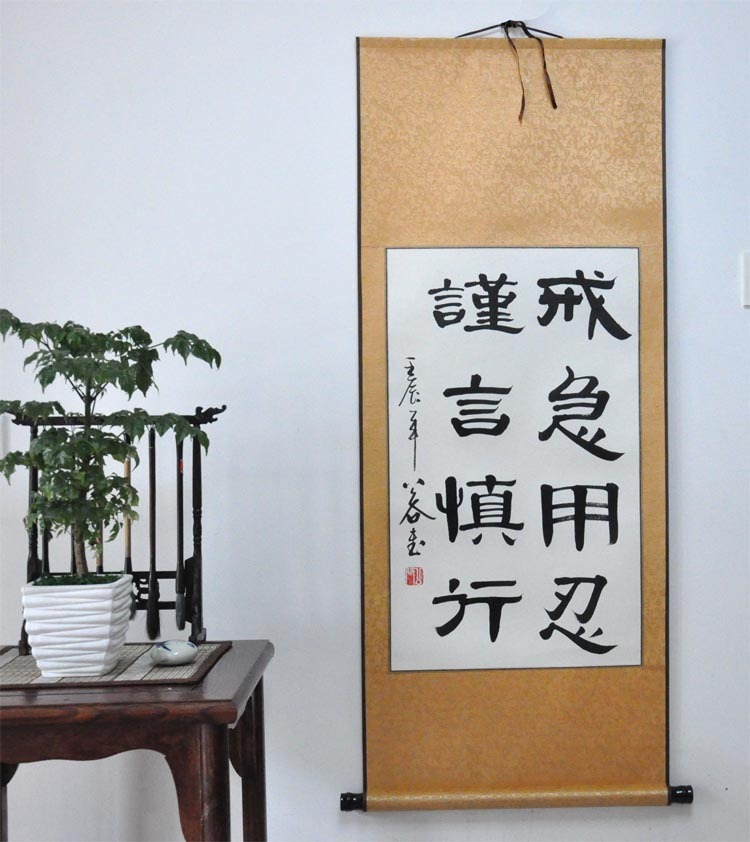 戒急用忍
謹言慎行
壬辰年